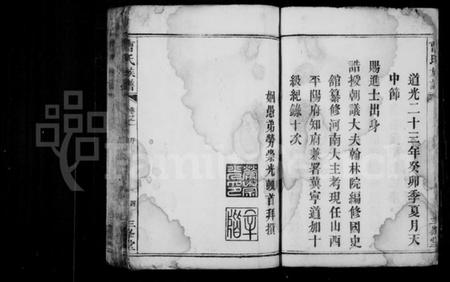 道光二十三年癸卯季夏月天
中節
賜進士出身
誥授朝議大夫翰林院編修國史
館纂修河南大主考現任山西
平陽府知府兼署冀寧道加十
級紀錄十次
姻愚弟勞崇光頓首拜撰
曹氏族譜
FamilySearch